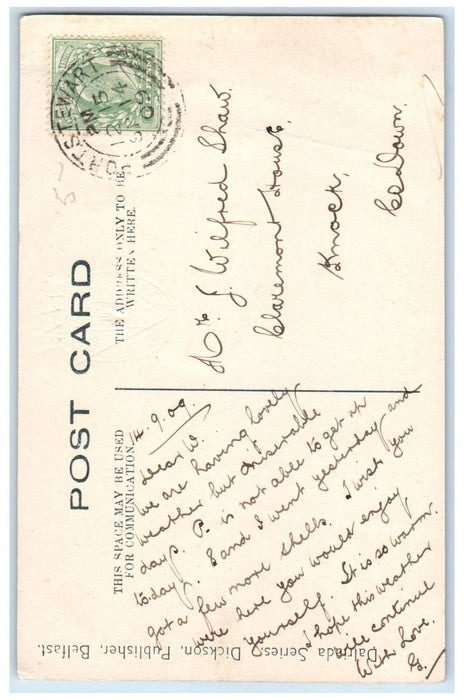 POST CARD
THIS SPACE MAY BE USED
FOR COMMUNICATION.
THE ADDRESS ONLY TO BE
WRITTEN HERE.
PORTSTEWART
SP 14
09
14.9.09.
Dear W.
We are having lovely
weather but miserable
days. P. is not able to get up
today. E and I went yesterday and
got a few more shells. I wish you
were here you would enjoy
yourself. It is so warm.
I hope this weather
will continue
With Love.
G.
Mr. J. Wilfred Shaw.
Claremont House,
Knock,
Co Down.
Dalriada Series. Dickson, Publisher, Belfast.